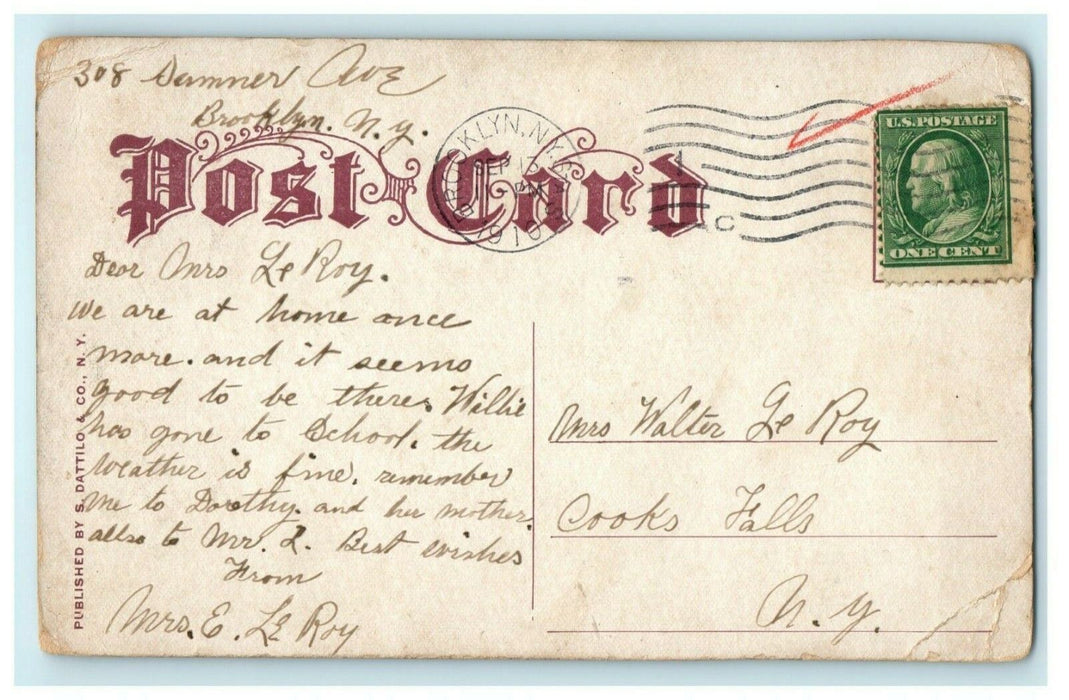 308 Sumner Ave
Brooklyn. N.Y.
Post Card
BROOKLYN, N.Y.
SEP 17
PM
1910
1
C
U.S. POSTAGE
ONE CENT
Dear Mrs Le Roy.
We are at home once
more. and it seems
good to be there. Willie
has gone to School. the
weather is fine. remember
me to Dorethy. and her mother.
allso to Mr. L. Best wishes
From
Mrs. E. Le Roy
PUBLISHED BY S. DATTILO & CO., N. Y.
Mrs Walter Le Roy
Cooks Falls
N.Y.